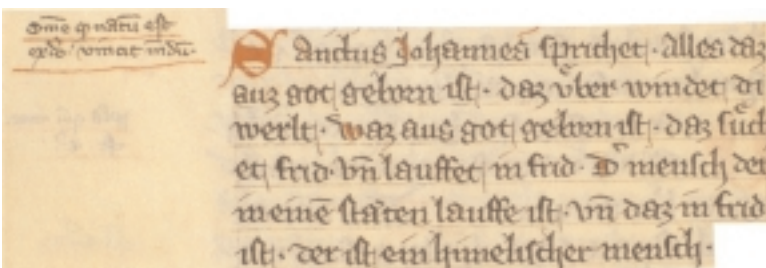 Om̄e qͥ natū est
ex dō vincit mdū·
Sanctus Johannes sprichet· Alles daz
auz got geborn ist· daz vͤber windet di
werlt· Waz aus got geborn ist· daz sůch
et frid· vn̄ lauffet in frid· Dͥ mensch der
in einē stäten lauffe ist· vn̄ daz in frid
ist· der ist ein himelischer mensch·